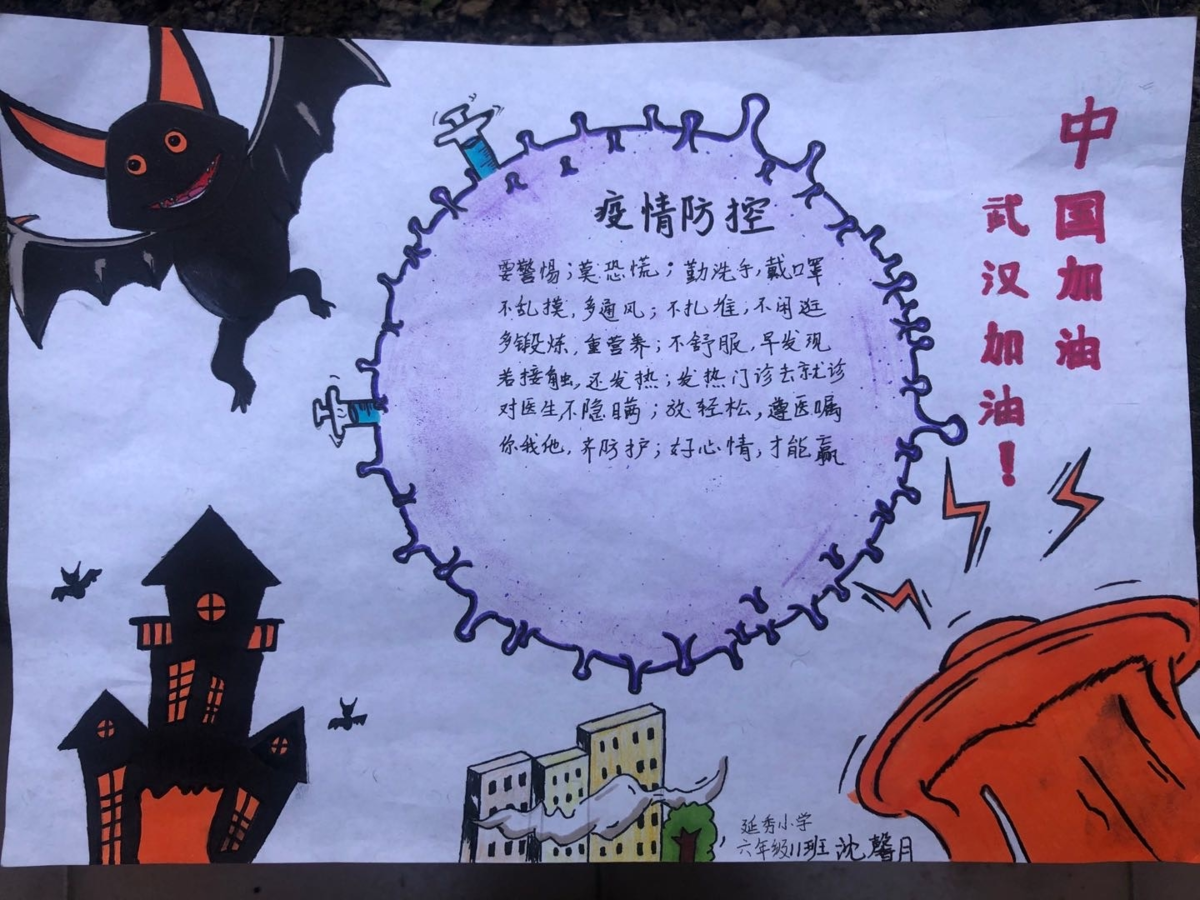 疫情防控
要警惕；莫恐慌；勤洗手，戴口罩
不乱摸，多通风；不扎堆，不闲逛
多锻炼，重营养；不舒服，早发现
若接触，还发热；发热门诊去就诊
对医生不隐瞒；放轻松，遵医嘱
你我他，齐防护；好心情，才能赢
中国加油
武汉加油！
延秀小学
六年级11班 沈馨月